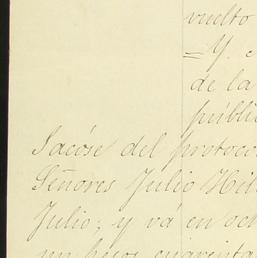 vuelto
=Y.
de la
públi
Sacóse del protoco
Señores Julio Hil
Julio; y vá en oct
un fojas cuarenta